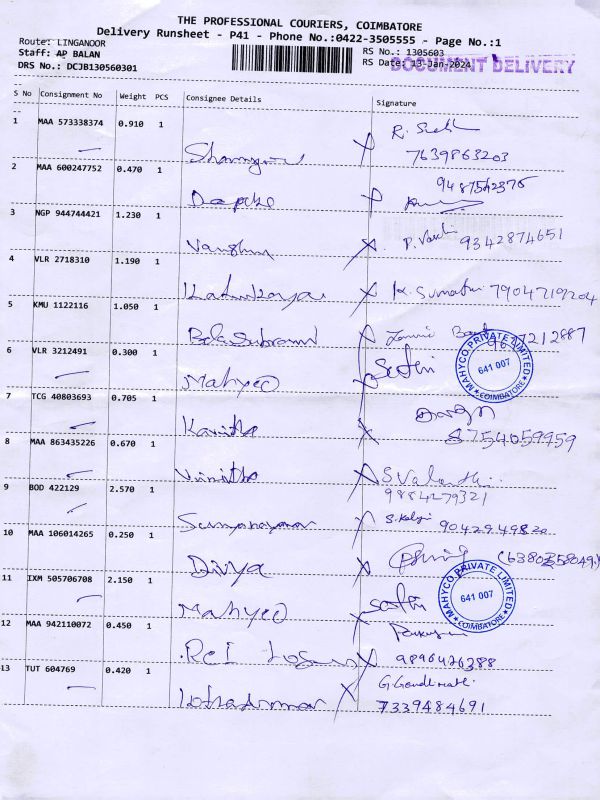 THE PROFESSIONAL COURIERS, COIMBATORE
Delivery Runsheet - P41 - Phone No.:0422-3505555 - Page No.:1
Route: LINGANOOR
Staff: AP BALAN
DRS No.: DCJB130560301
RS No.: 1305603
RS Date: 13-Jan-2024
DOCUMENT DELIVERY
S No Consignment No Weight PCS Consignee Details Signature
1 MAA 573338374 0.910 1
7639863203
2 MAA 600247752 0.470 1
3 NGP 944744421 1.230 1
9342874651
4 VLR 2718310 1.190 1
K. Sumathi 7904719204
5 KMU 1122116 1.050 1
6 VLR 3212491 0.300 1 Mahyco Sathi
MAHYCO PRIVATE LIMITED
641 007
COIMBATORE
7 TCG 40803693 0.705 1 Kavitha
8754059959
8 MAA 863435226 0.670 1 Vinitha
9884279321
9 BOD 422129 2.570 1
10 MAA 106014265 0.250 1 Divya
11 IXM 505706708 2.150 1 Mahyco Sathi
MAHYCO PRIVATE LIMITED
641 007
COIMBATORE
12 MAA 942110072 0.450 1
9896426388
13 TUT 604769 0.420 1
7339484691